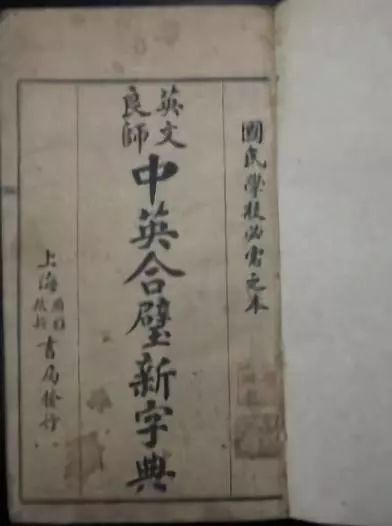 國民學校必需之本
英文
良師
中英合璧新字典
上海
書局發行